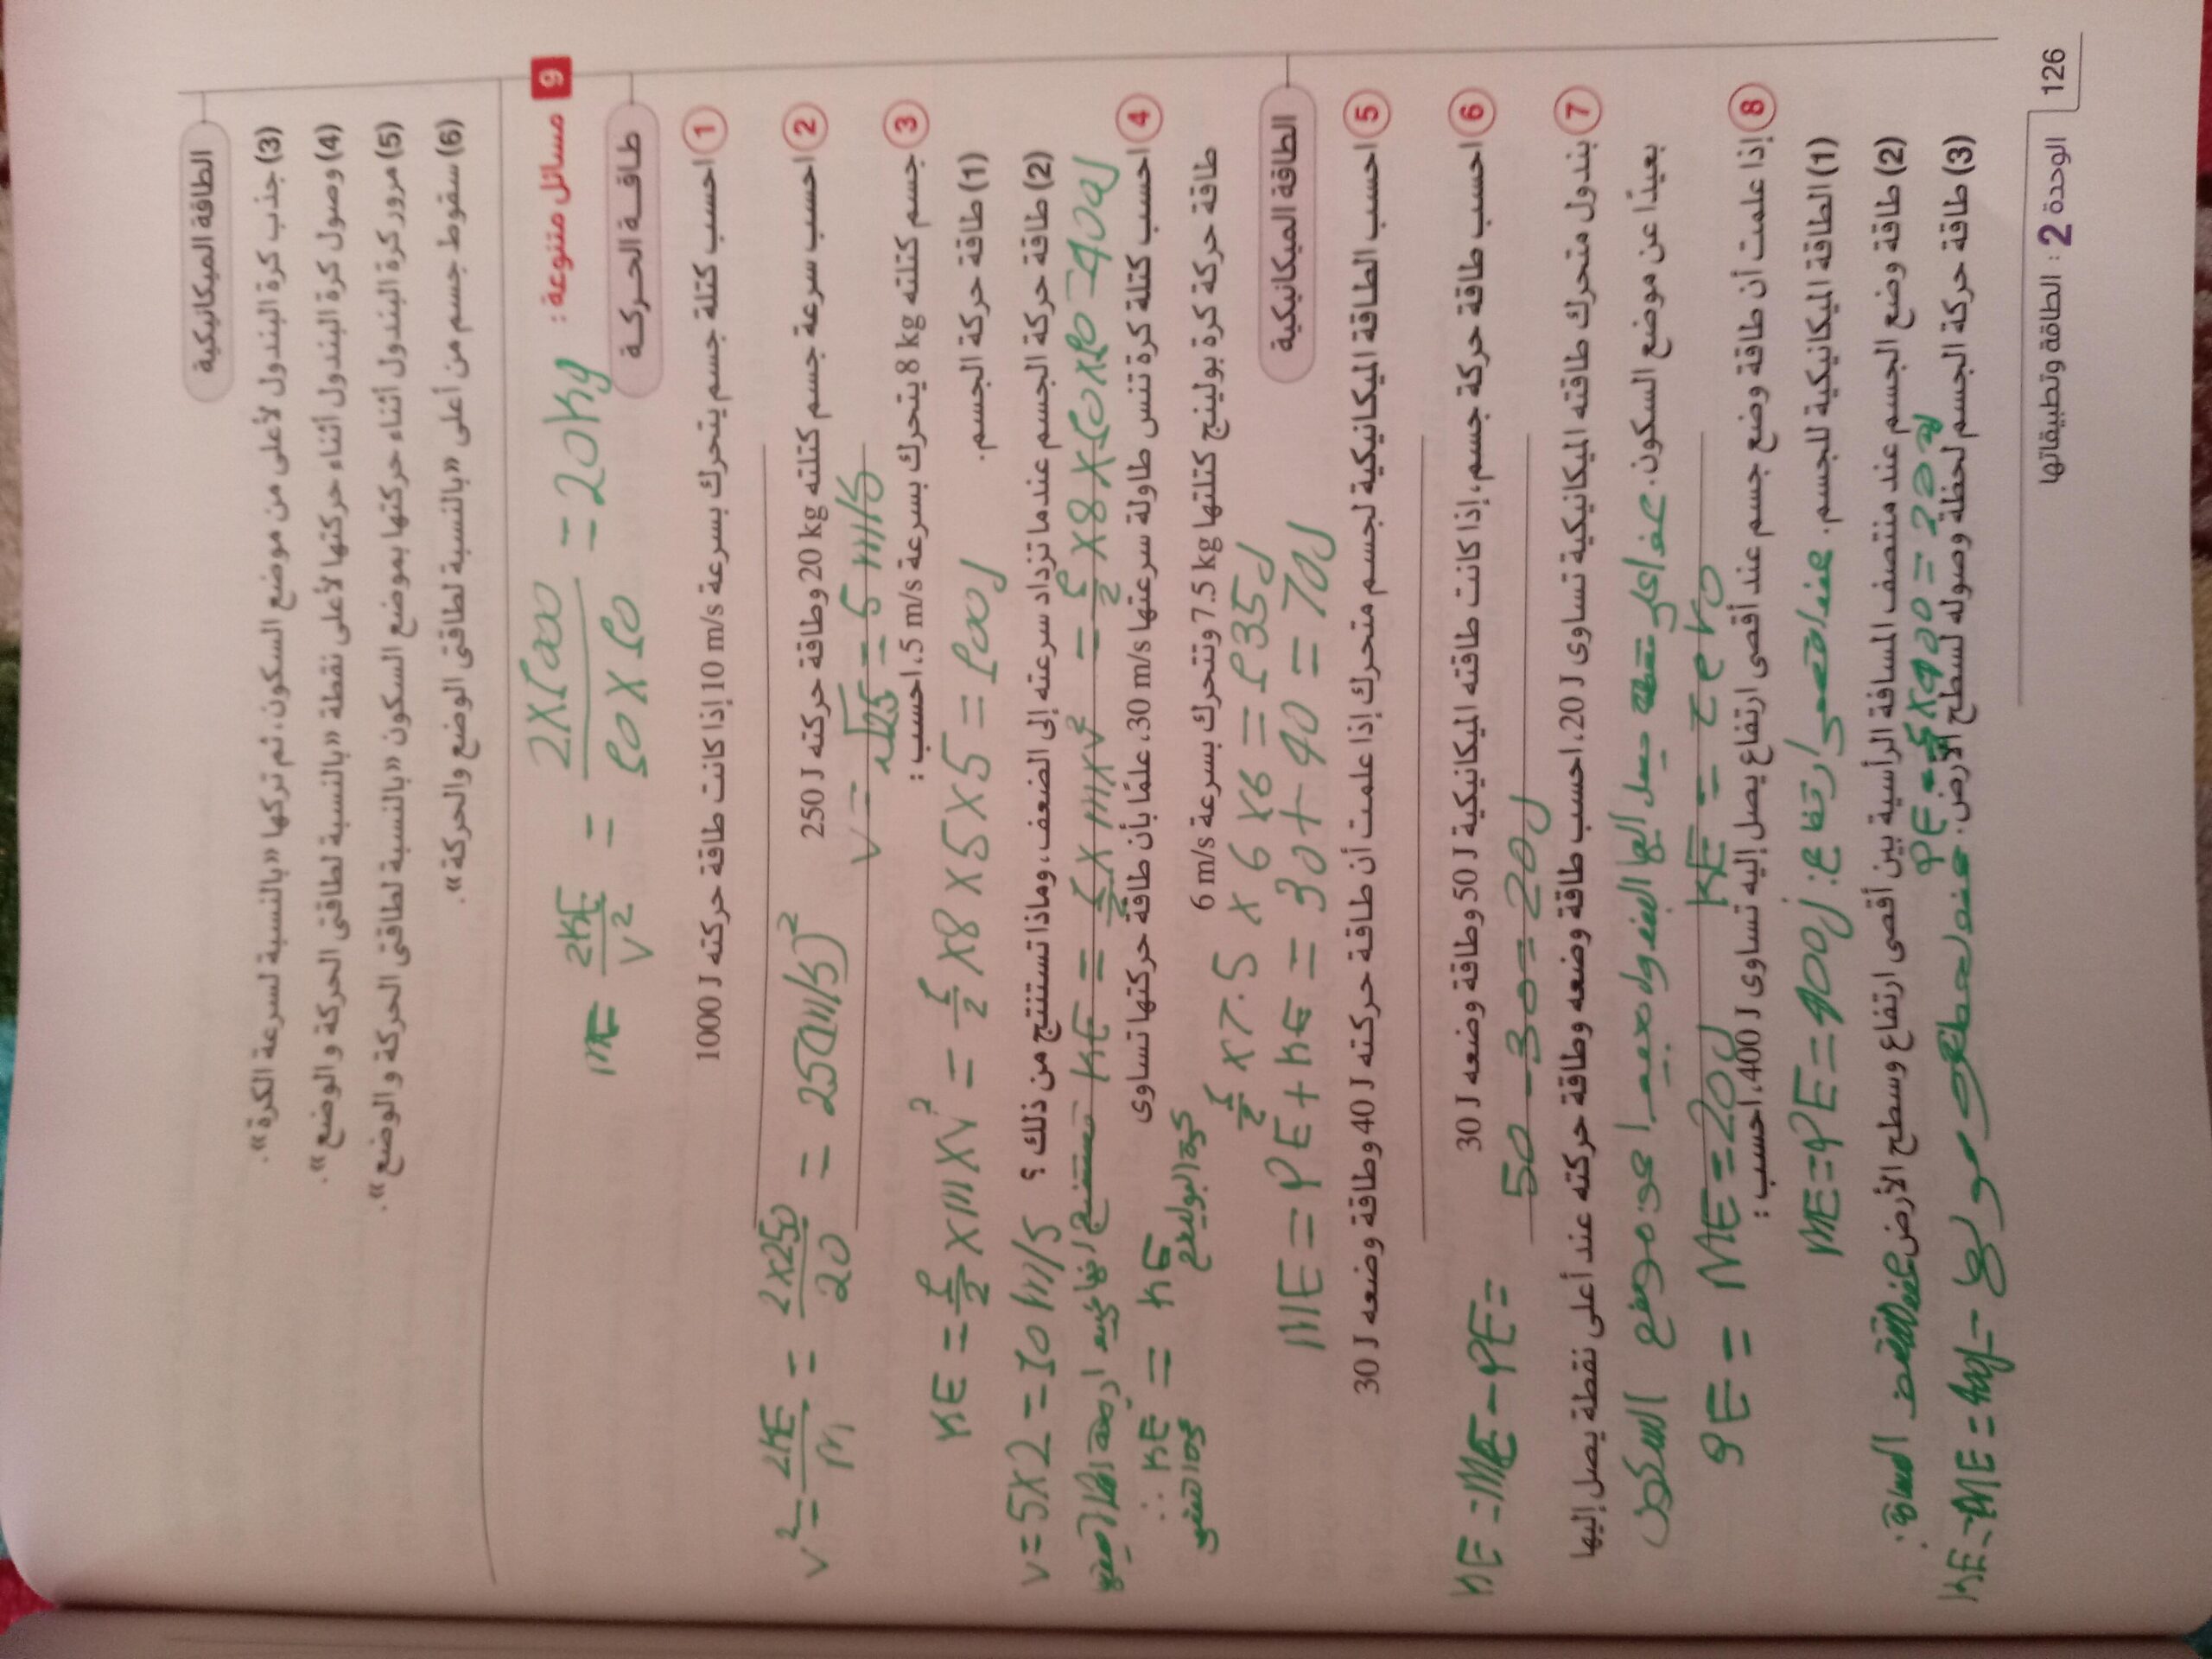 الطاقة الميكانيكية
(3) جذب كرة البندول لأعلى من موضع السكون، ثم تركها «بالنسبة لسرعة الكرة».
(4) وصول كرة البندول أثناء حركتها لأعلى نقطة «بالنسبة لطاقتى الحركة و الوضع».
(5) مرور كرة البندول أثناء حركتها بموضع السكون «بالنسبة لطاقتى الحركة و الوضع».
(6) سقوط جسم من أعلى «بالنسبة لطاقتى الوضع والحركة».
9 مسائل متنوعة :
= 2KE / V² = 2X1000 / 10 X 10 = 20Kg
طاقــة الحـركـة
1 احسب كتلة جسم يتحرك بسرعة 10 m/s إذا كانت طاقة حركته 1000 J
2 احسب سرعة جسم كتلته 20 kg وطاقة حركته 250 J
V² = 2KE / m = 2X250 / 20 = 25(m/s)²
V = √25 = 5 m/s
3 جسم كتلته 8 kg يتحرك بسرعة 5 m/s، احسب :
(1) طاقة حركة الجسم.
KE = 1/2 X m X V² = 1/2 X8 X 5 X 5 = 100J
(2) طاقة حركة الجسم عندما تزداد سرعته إلى الضعف، وماذا تستنتج من ذلك ؟
V = 5X2 = 10 m/s
KE = 1/2 X m X V² = 1/2 X 8 X 10 X 10 = 400J
4 احسب كتلة كرة تنس طاولة سرعتها 30 m/s، علمًا بأن طاقة حركتها تساوى
طاقة حركة كرة بولينج كتلتها 7.5 kg وتتحرك بسرعة 6 m/s
∴ KE = KE
1/2 X 7.5 X 6 X 6 = 135J
الطاقة الميكانيكية
mE = PE + KE = 30 + 40 = 70J
5 احسب الطاقة الميكانيكية لجسم متحرك إذا علمت أن طاقة حركته 40 J وطاقة وضعه 30 J
6 احسب طاقة حركة جسم، إذا كانت طاقته الميكانيكية 50 J وطاقة وضعه 30 J
KE = ME - PE =
50 - 30 = 20J
7 بندول متحرك طاقته الميكانيكية تساوى 20 J، احسب طاقة وضعه وطاقة حركته عند أعلى نقطة يصل إليها
بعيدًا عن موضع السكون. عند اعلى نقطة يصل اليها البندول بعيدا عن موضع السكون
PE = ME = 20J KE = zero
8 إذا علمت أن طاقة وضع جسم عند أقصى ارتفاع يصل إليه تساوى 400 J، احسب :
(1) الطاقة الميكانيكية للجسم. عند اقصى ارتفاع: ME = PE = 400J
(2) طاقة وضع الجسم عند منتصف المسافة الرأسية بين أقصى ارتفاع وسطح الأرض.
(3) طاقة حركة الجسم لحظة وصوله لسطح الأرض.
الوحدة 2 : الطاقة وتطبيقاتها
126